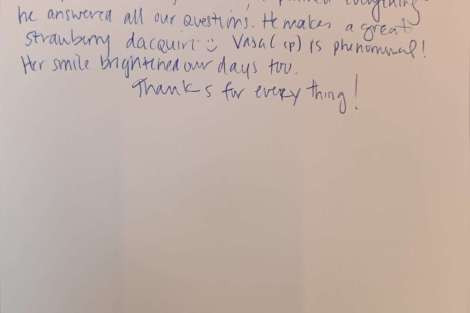 everything
he answered all our questions. He makes a great
strawberry dacquiri :) Vasa( sp) is phenominal!
Her smile brightined our days too.
Thanks for every thing!